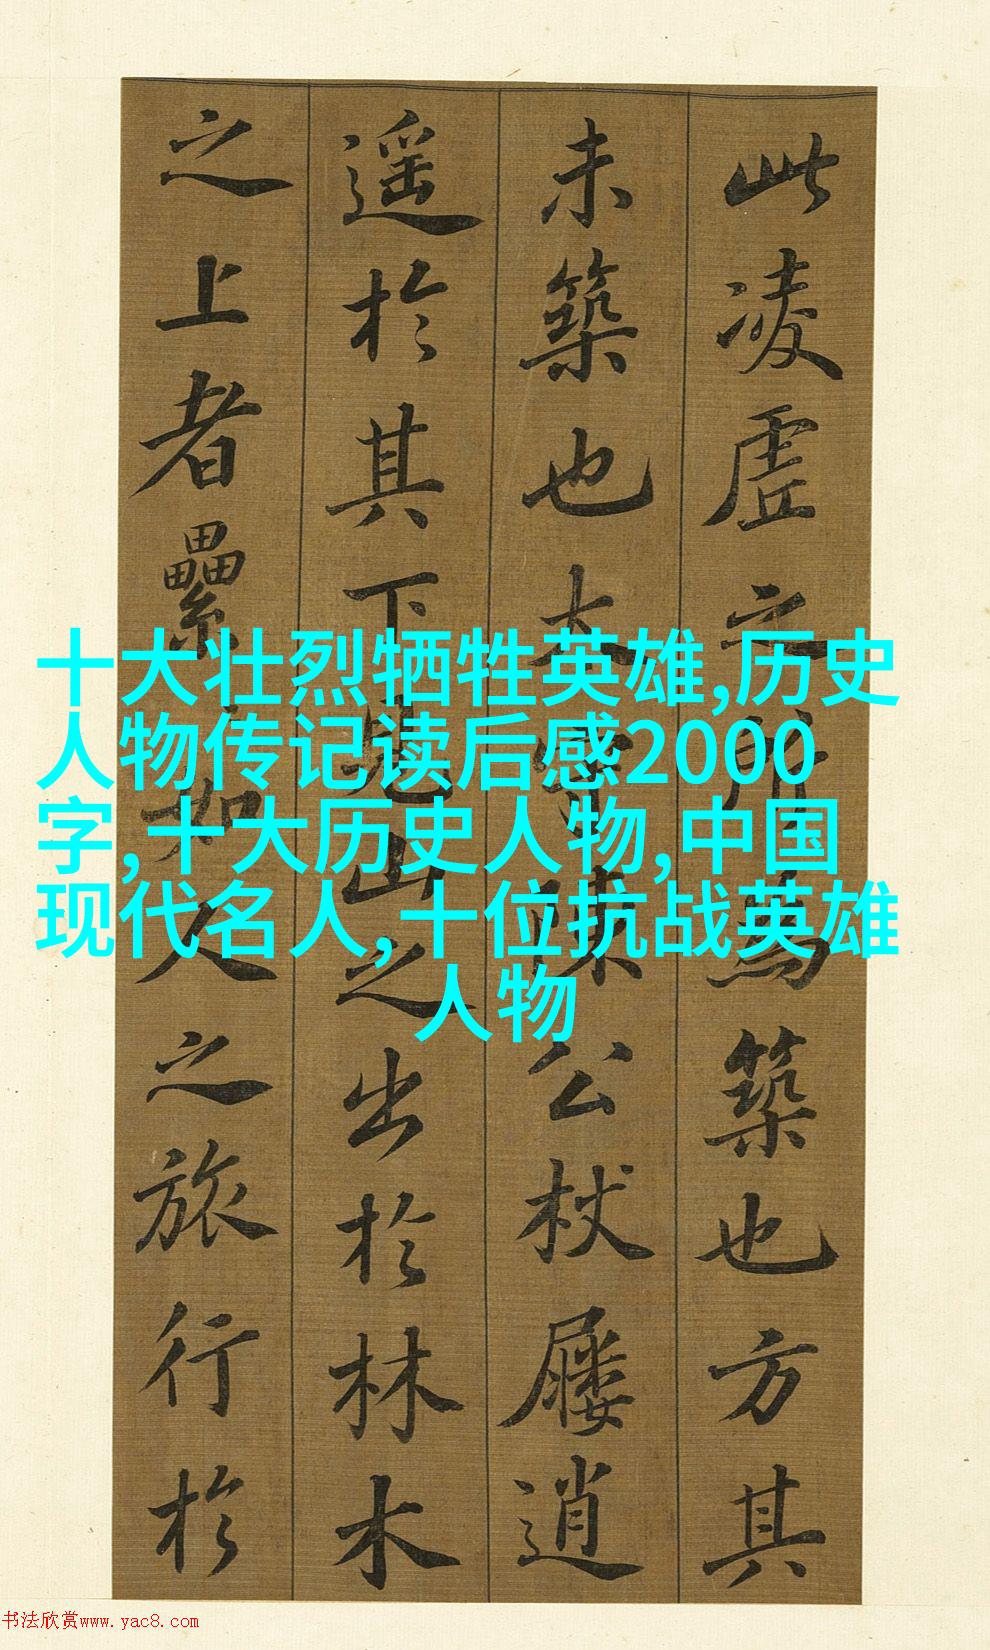 此凌虛之所為築也方其
未築也太守陳公杖屨逍
遥於其下見山之出於林木
之上者纍如人之旅行於
十大壮烈牺牲英雄,历史
人物传记读后感2000
字,十大历史人物,中国
现代名人,十位抗战英雄
人物
书法欣赏www.yac8.com